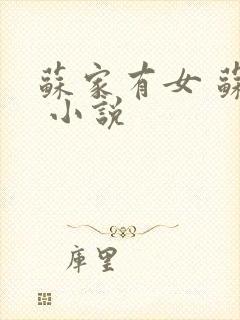 蘇家有女 蘇
小說
庫里